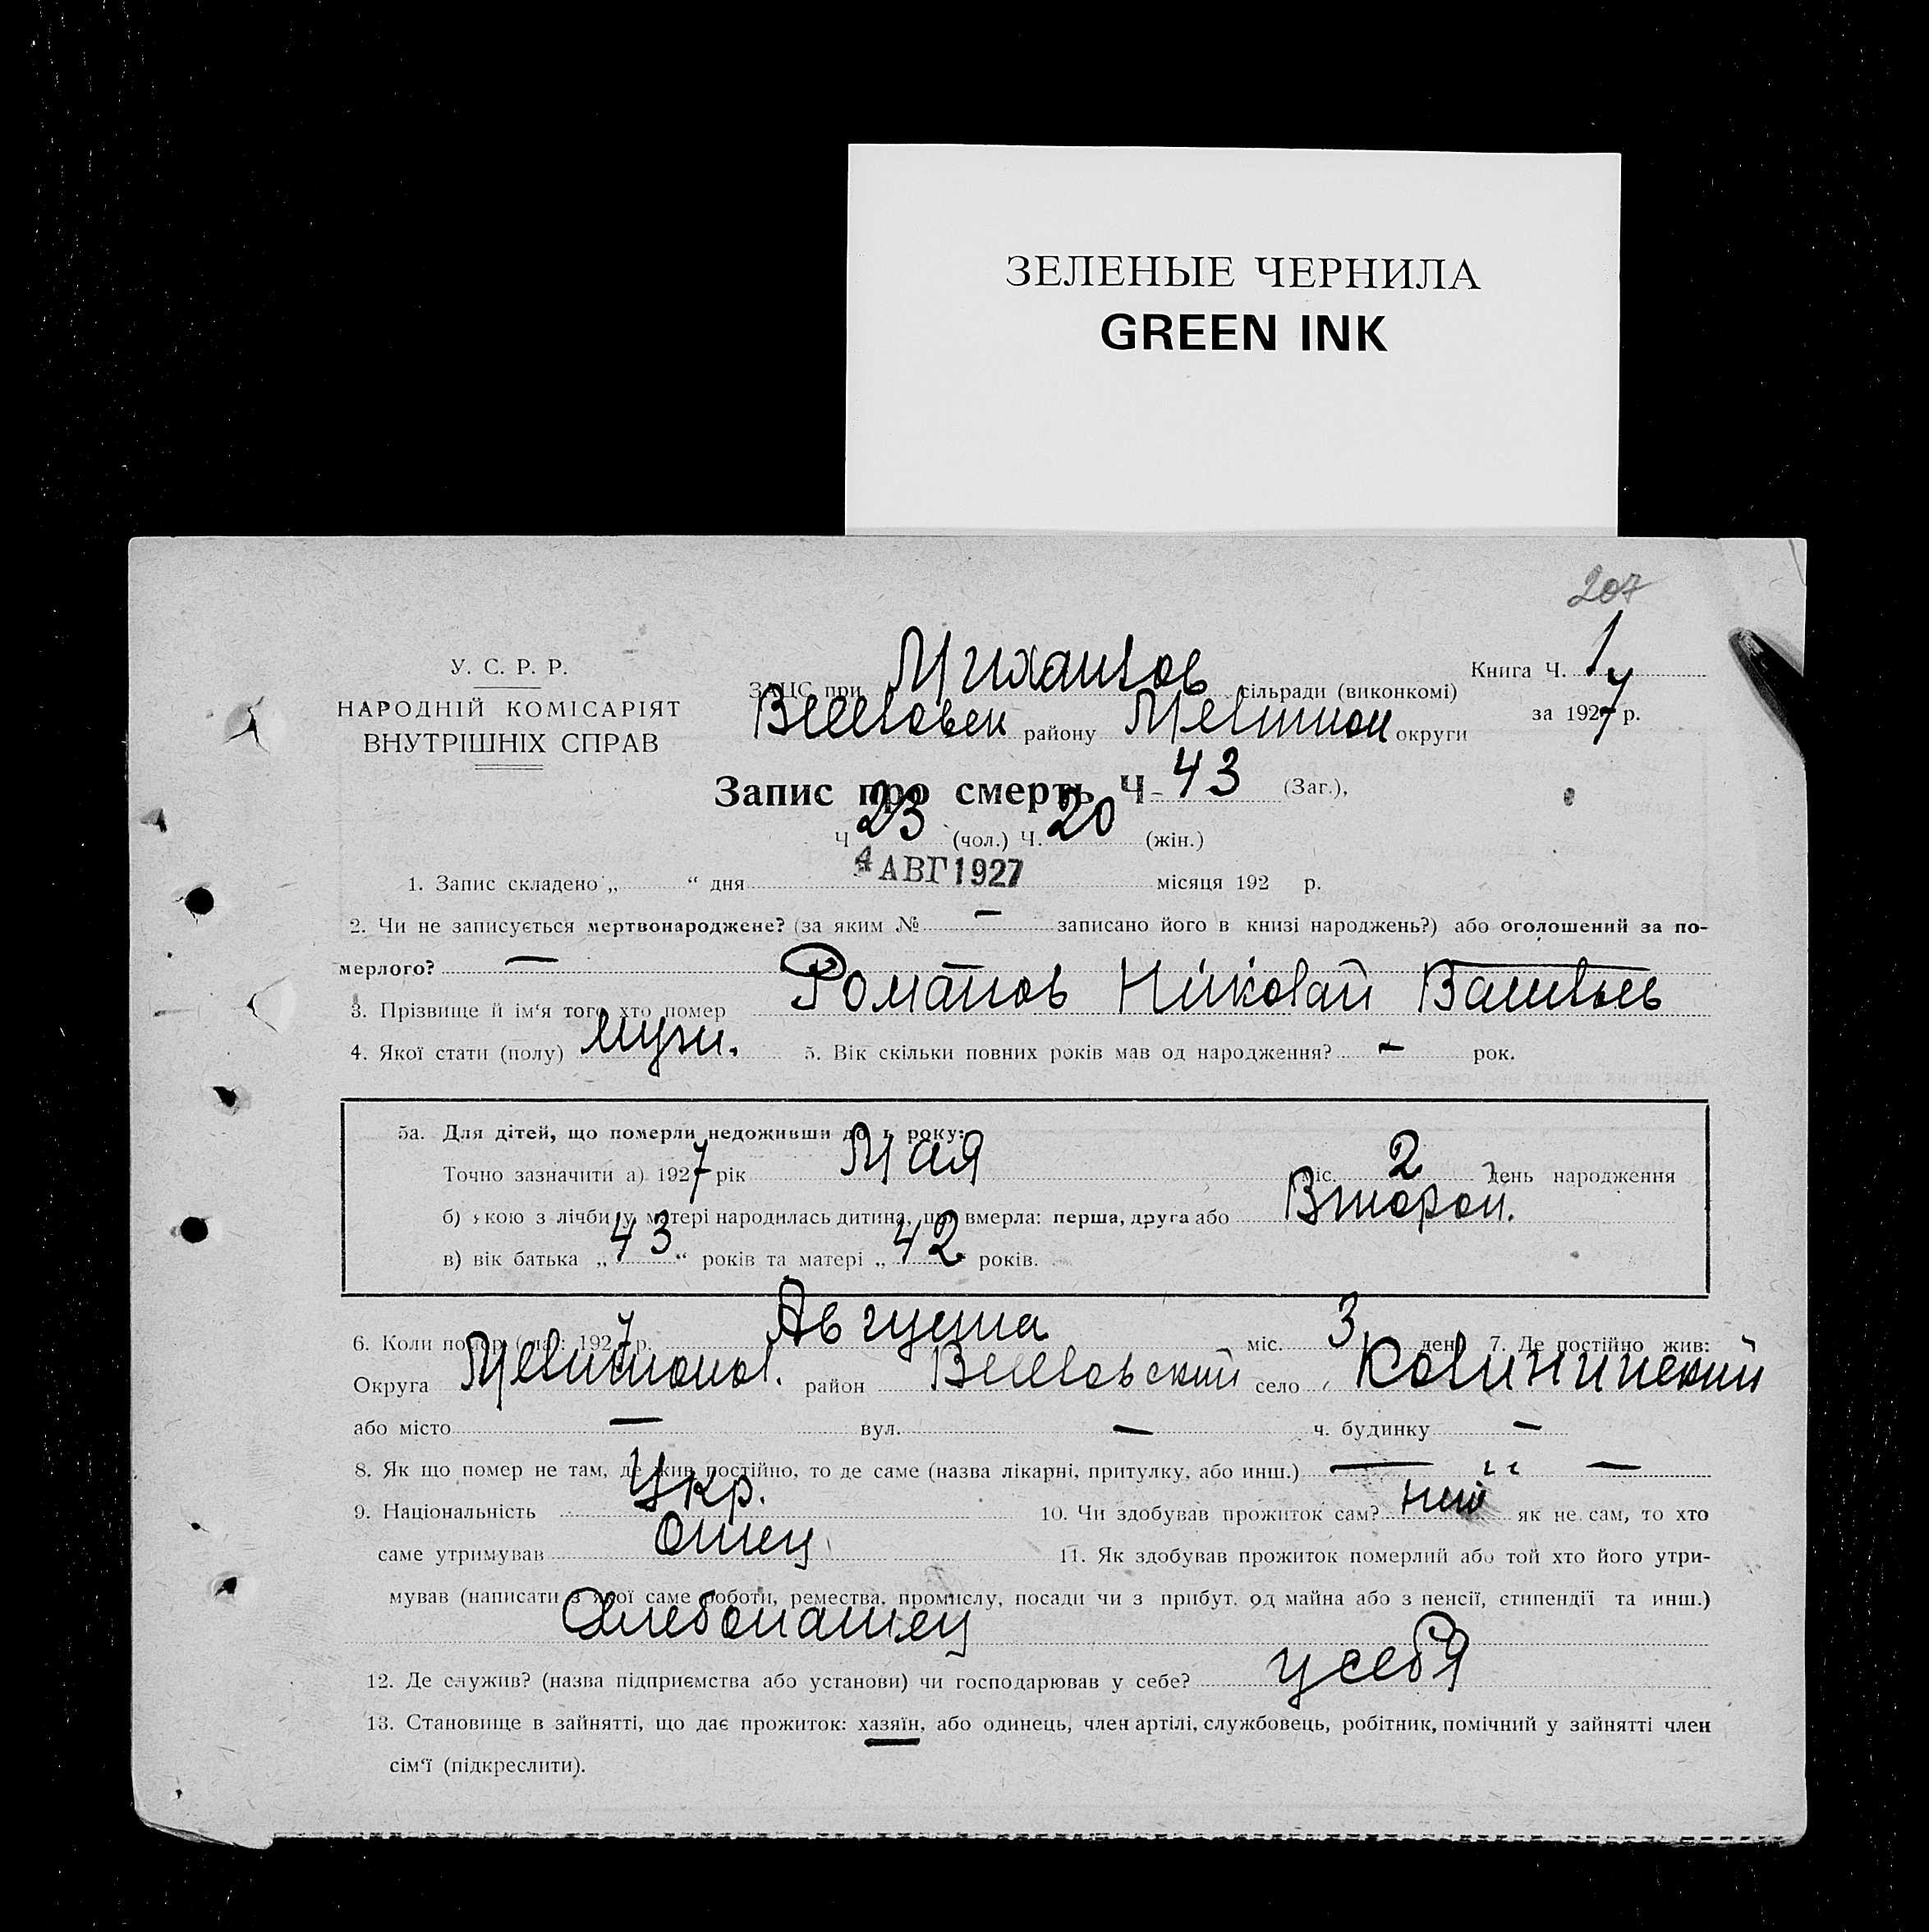 ЗЕЛЕНЫЕ ЧЕРНИЛА
GREEN INK
207
У. С. Р. Р.
НАРОДНІЙ КОМІСАРІЯТ
ВНУТРІШНІХ СПРАВ
ЗАЦС при Михайлов сільради (виконкомі)
Веселовск району Мелитоп округи
Книга Ч. 1
за 1927 р.
Запис про смерть Ч 43 (Заг.),
Ч 23 (чол.) Ч. 20 (жін.)
1. Запис складено „ “ дня 4 АВГ 1927 місяця 192 р.
2. Чи не записується мертвонароджене? (за яким № — записано його в книзі народжень?) або оголошений за по-
мерлого? —
3. Прізвище й ім‘я того хто помер Романов Николай Васильев
4. Якої стати (полу) мужч. 5. Вік скільки повних років мав од народження? — рок.
5а. Для дітей, що померли недоживши до 1 року:
Точно зазначити а) 1927 рік Мая міс. 2 день народження
б) якою з лічби у матері народилась дитина, що вмерла: перша, друга або Второй.
в) вік батька „ 43 “ років та матері „ 42 років.
6. Коли помер (дата): 1927 р. Августа міс. 3 день 7. Де постійно жив:
Округа Мелитопол. район Веселовский село Калининский
або місто — вул. — ч. будинку —
8. Як що помер не там, де жив постійно, то де саме (назва лікарні, притулку, або инш.) — „ —
9. Національність Укр. 10. Чи здобував прожиток сам? нет як не сам, то хто
саме утримував Отец 11. Як здобував прожиток померлий або той хто його утри-
мував (написати з якої саме роботи, ремества, промислу, посади чи з прибут. од майна або з пенсії, стипендії та инш.)
Хлебопашец
12. Де служив? (назва підприємства або установи) чи господарював у себе? у себя
13. Становище в зайнятті, що дає прожиток: хазяїн, або одинець, член артілі, службовець, робітник, помічний у зайнятті член
сім‘ї (підкреслити).